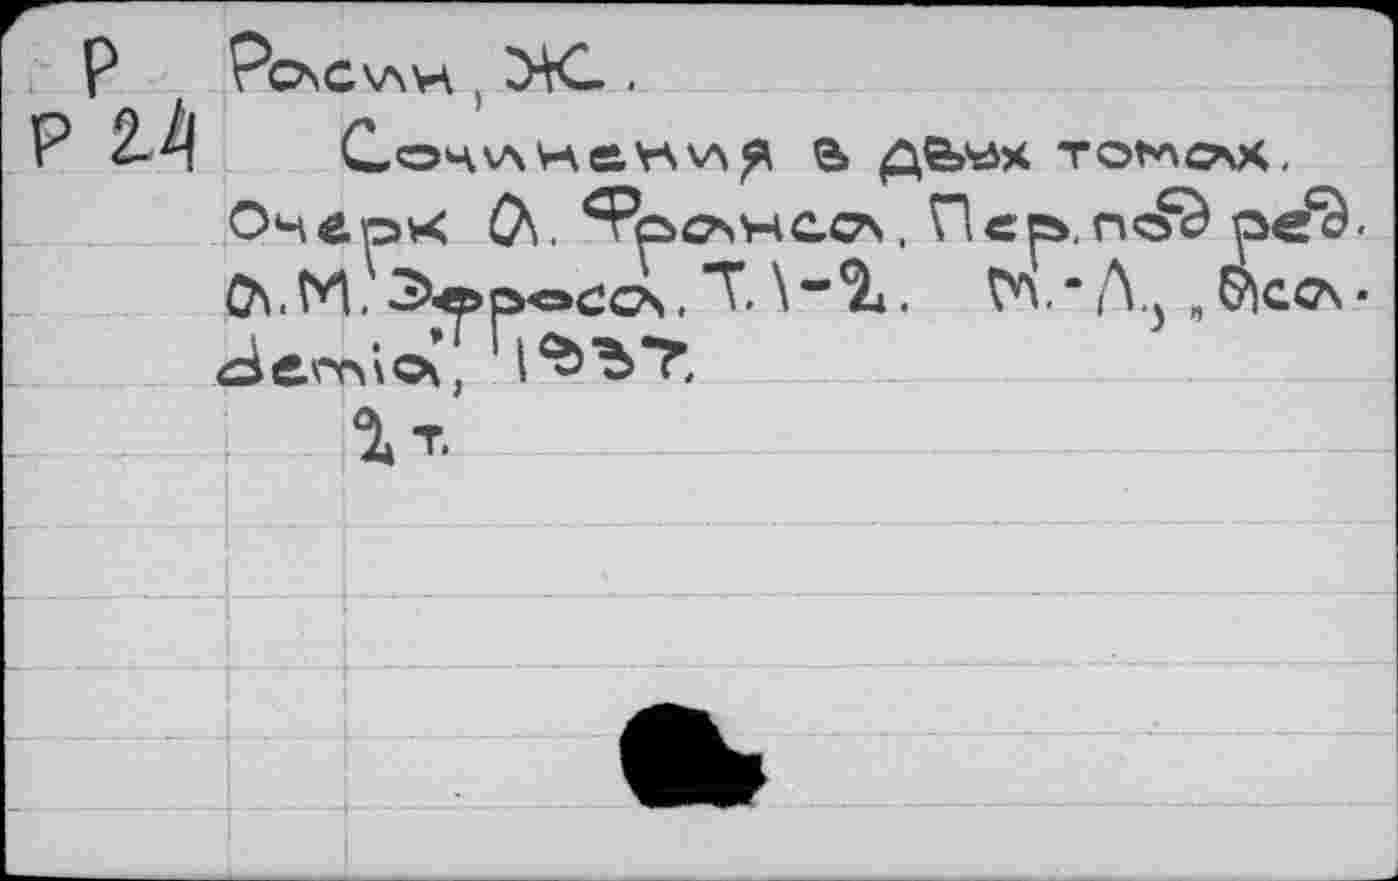 Р Расин, Ж.
Р 24 Сочинения в двух томах.
Очерк А. Франса. Пер. под ред.
А.М. Эфроса. Т. 1-2. М.-Л., „Aca-
demia", 1937.
2 т.